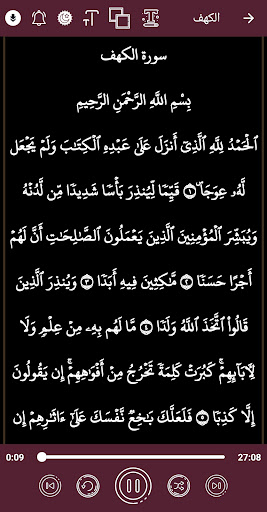 الكهف
سورة الكهف
بِسْمِ اللَّهِ الرَّحْمَٰنِ الرَّحِيمِ
ٱلْحَمْدُ لِلَّهِ ٱلَّذِىٓ أَنزَلَ عَلَىٰ عَبْدِهِ ٱلْكِتَٰبَ وَلَمْ يَجْعَل
لَّهُۥ عِوَجَا ۜ ١ قَيِّمًا لِّيُنذِرَ بَأْسًا شَدِيدًا مِّن لَّدُنْهُ
وَيُبَشِّرَ ٱلْمُؤْمِنِينَ ٱلَّذِينَ يَعْمَلُونَ ٱلصَّٰلِحَٰتِ أَنَّ لَهُمْ
أَجْرًا حَسَنًا ٢ مَّٰكِثِينَ فِيهِ أَبَدًا ٣ وَيُنذِرَ ٱلَّذِينَ
قَالُوا۟ ٱتَّخَذَ ٱللَّهُ وَلَدًا ٤ مَّا لَهُم بِهِۦ مِنْ عِلْمٍ وَلَا
لِـَٔابَآئِهِمْ ۚ كَبُرَتْ كَلِمَةً تَخْرُجُ مِنْ أَفْوَٰهِهِمْ ۚ إِن يَقُولُونَ
إِلَّا كَذِبًا ٥ فَلَعَلَّكَ بَٰخِعٌ نَّفْسَكَ عَلَىٰٓ ءَاثَٰرِهِمْ إِن
0:09 27:08